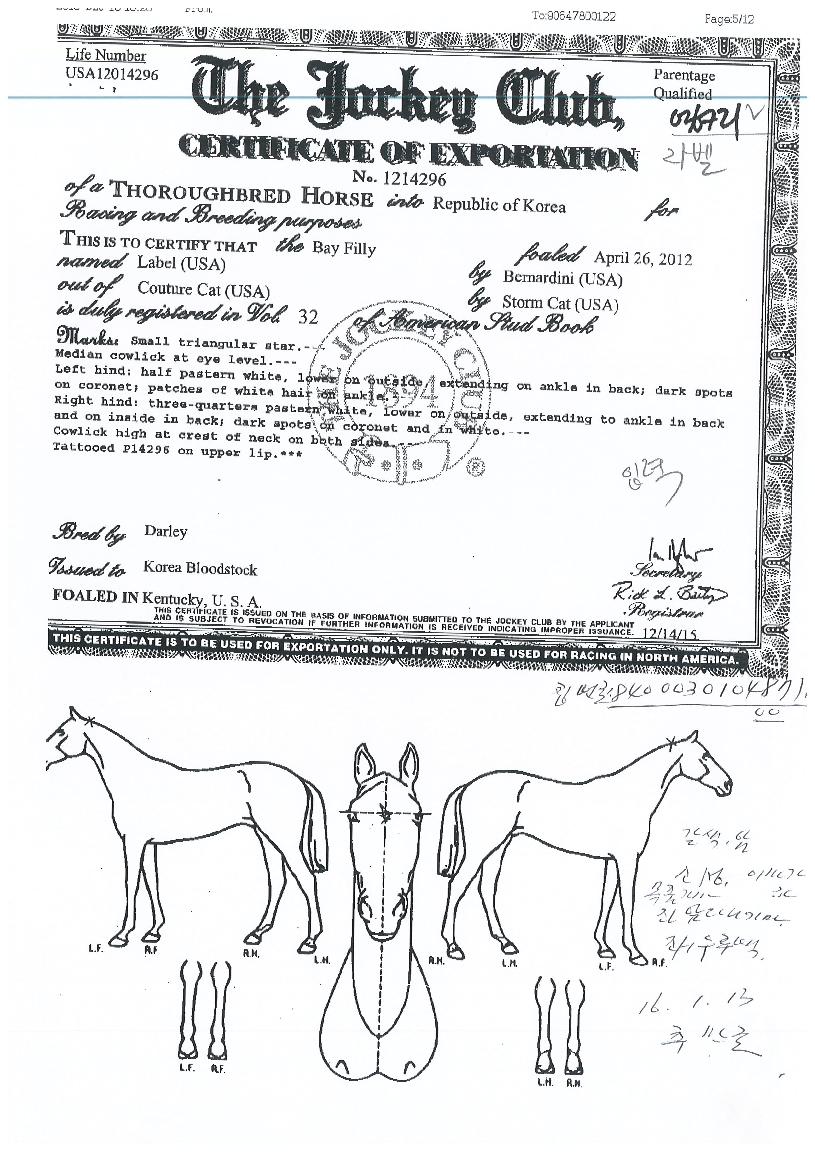 To:90647800122 Page:5/12
Life Number
USA12014296
Parentage
Qualified
The Jockey Club,
라벨
CERTIFICATE OF EXPORTATION
No. 1214296
of a THOROUGHBRED HORSE into Republic of Korea for
Racing and Breeding purposes
THIS IS TO CERTIFY THAT the Bay Filly foaled April 26, 2012
named Label (USA) by Bernardini (USA)
out of Couture Cat (USA) by Storm Cat (USA)
is duly registered in Vol. 32 of American Stud Book
THE JOCKEY CLUB
1894
®
Marks: Small triangular star.---
Median cowlick at eye level.---
Left hind: half pastern white, lower on outside, extending on ankle in back; dark spots
on coronet; patches of white hair on ankle.---
Right hind: three-quarters pastern white, lower on outside, extending to ankle in back
and on inside in back; dark spots on coronet and in white.---
Cowlick high at crest of neck on both sides.
Tattooed P14296 on upper lip.***
입력
Bred by Darley
Issued to Korea Bloodstock
Secretary
Registrar
FOALED IN Kentucky, U. S. A.
THIS CERTIFICATE IS ISSUED ON THE BASIS OF INFORMATION SUBMITTED TO THE JOCKEY CLUB BY THE APPLICANT
AND IS SUBJECT TO REVOCATION IF FURTHER INFORMATION IS RECEIVED INDICATING IMPROPER ISSUANCE. 12/14/15
THIS CERTIFICATE IS TO BE USED FOR EXPORTATION ONLY. IT IS NOT TO BE USED FOR RACING IN NORTH AMERICA.
갈색, 암
L.F. R.F. R.H. L.H. R.H. L.H. L.F. R.F.
16. 1. 13
L.F. R.F. L.H. R.H.